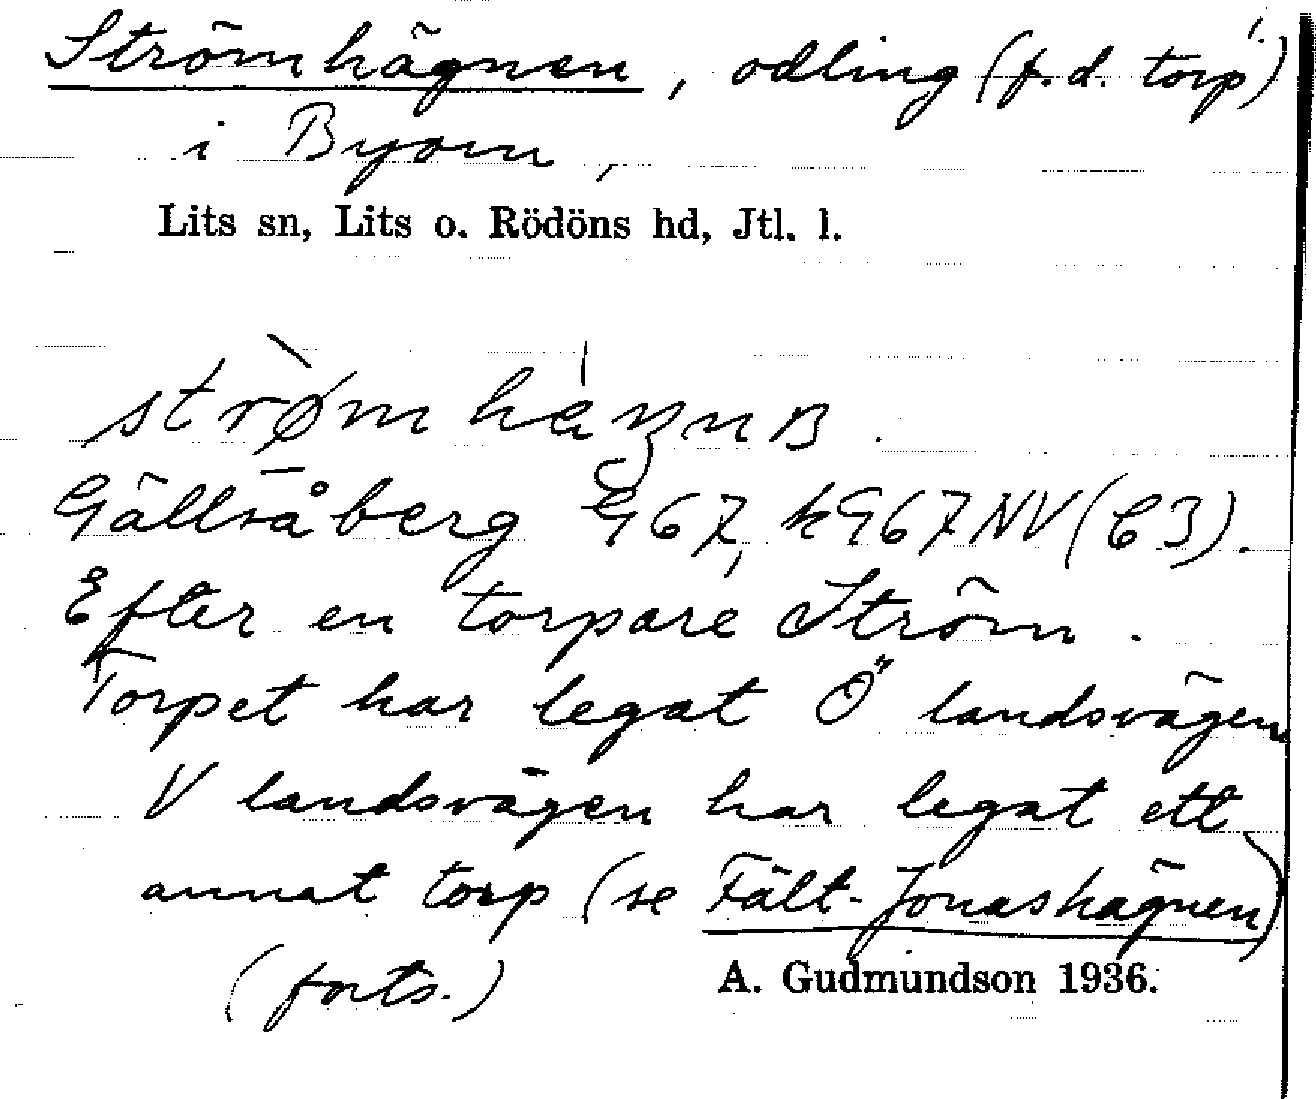 Strömhägnen, odling (f.d. torp)
i Byom,
Lits sn, Lits o. Rödöns hd, Jtl. l.
Gällsåberg G67, kG67NV (C3).
Efter en torpare Ström.
Torpet har legat Ö landsvägen
V landsvägen har legat ett
annat torp (se Fält-Jonashägnen)
(forts.)
A. Gudmundson 1936.